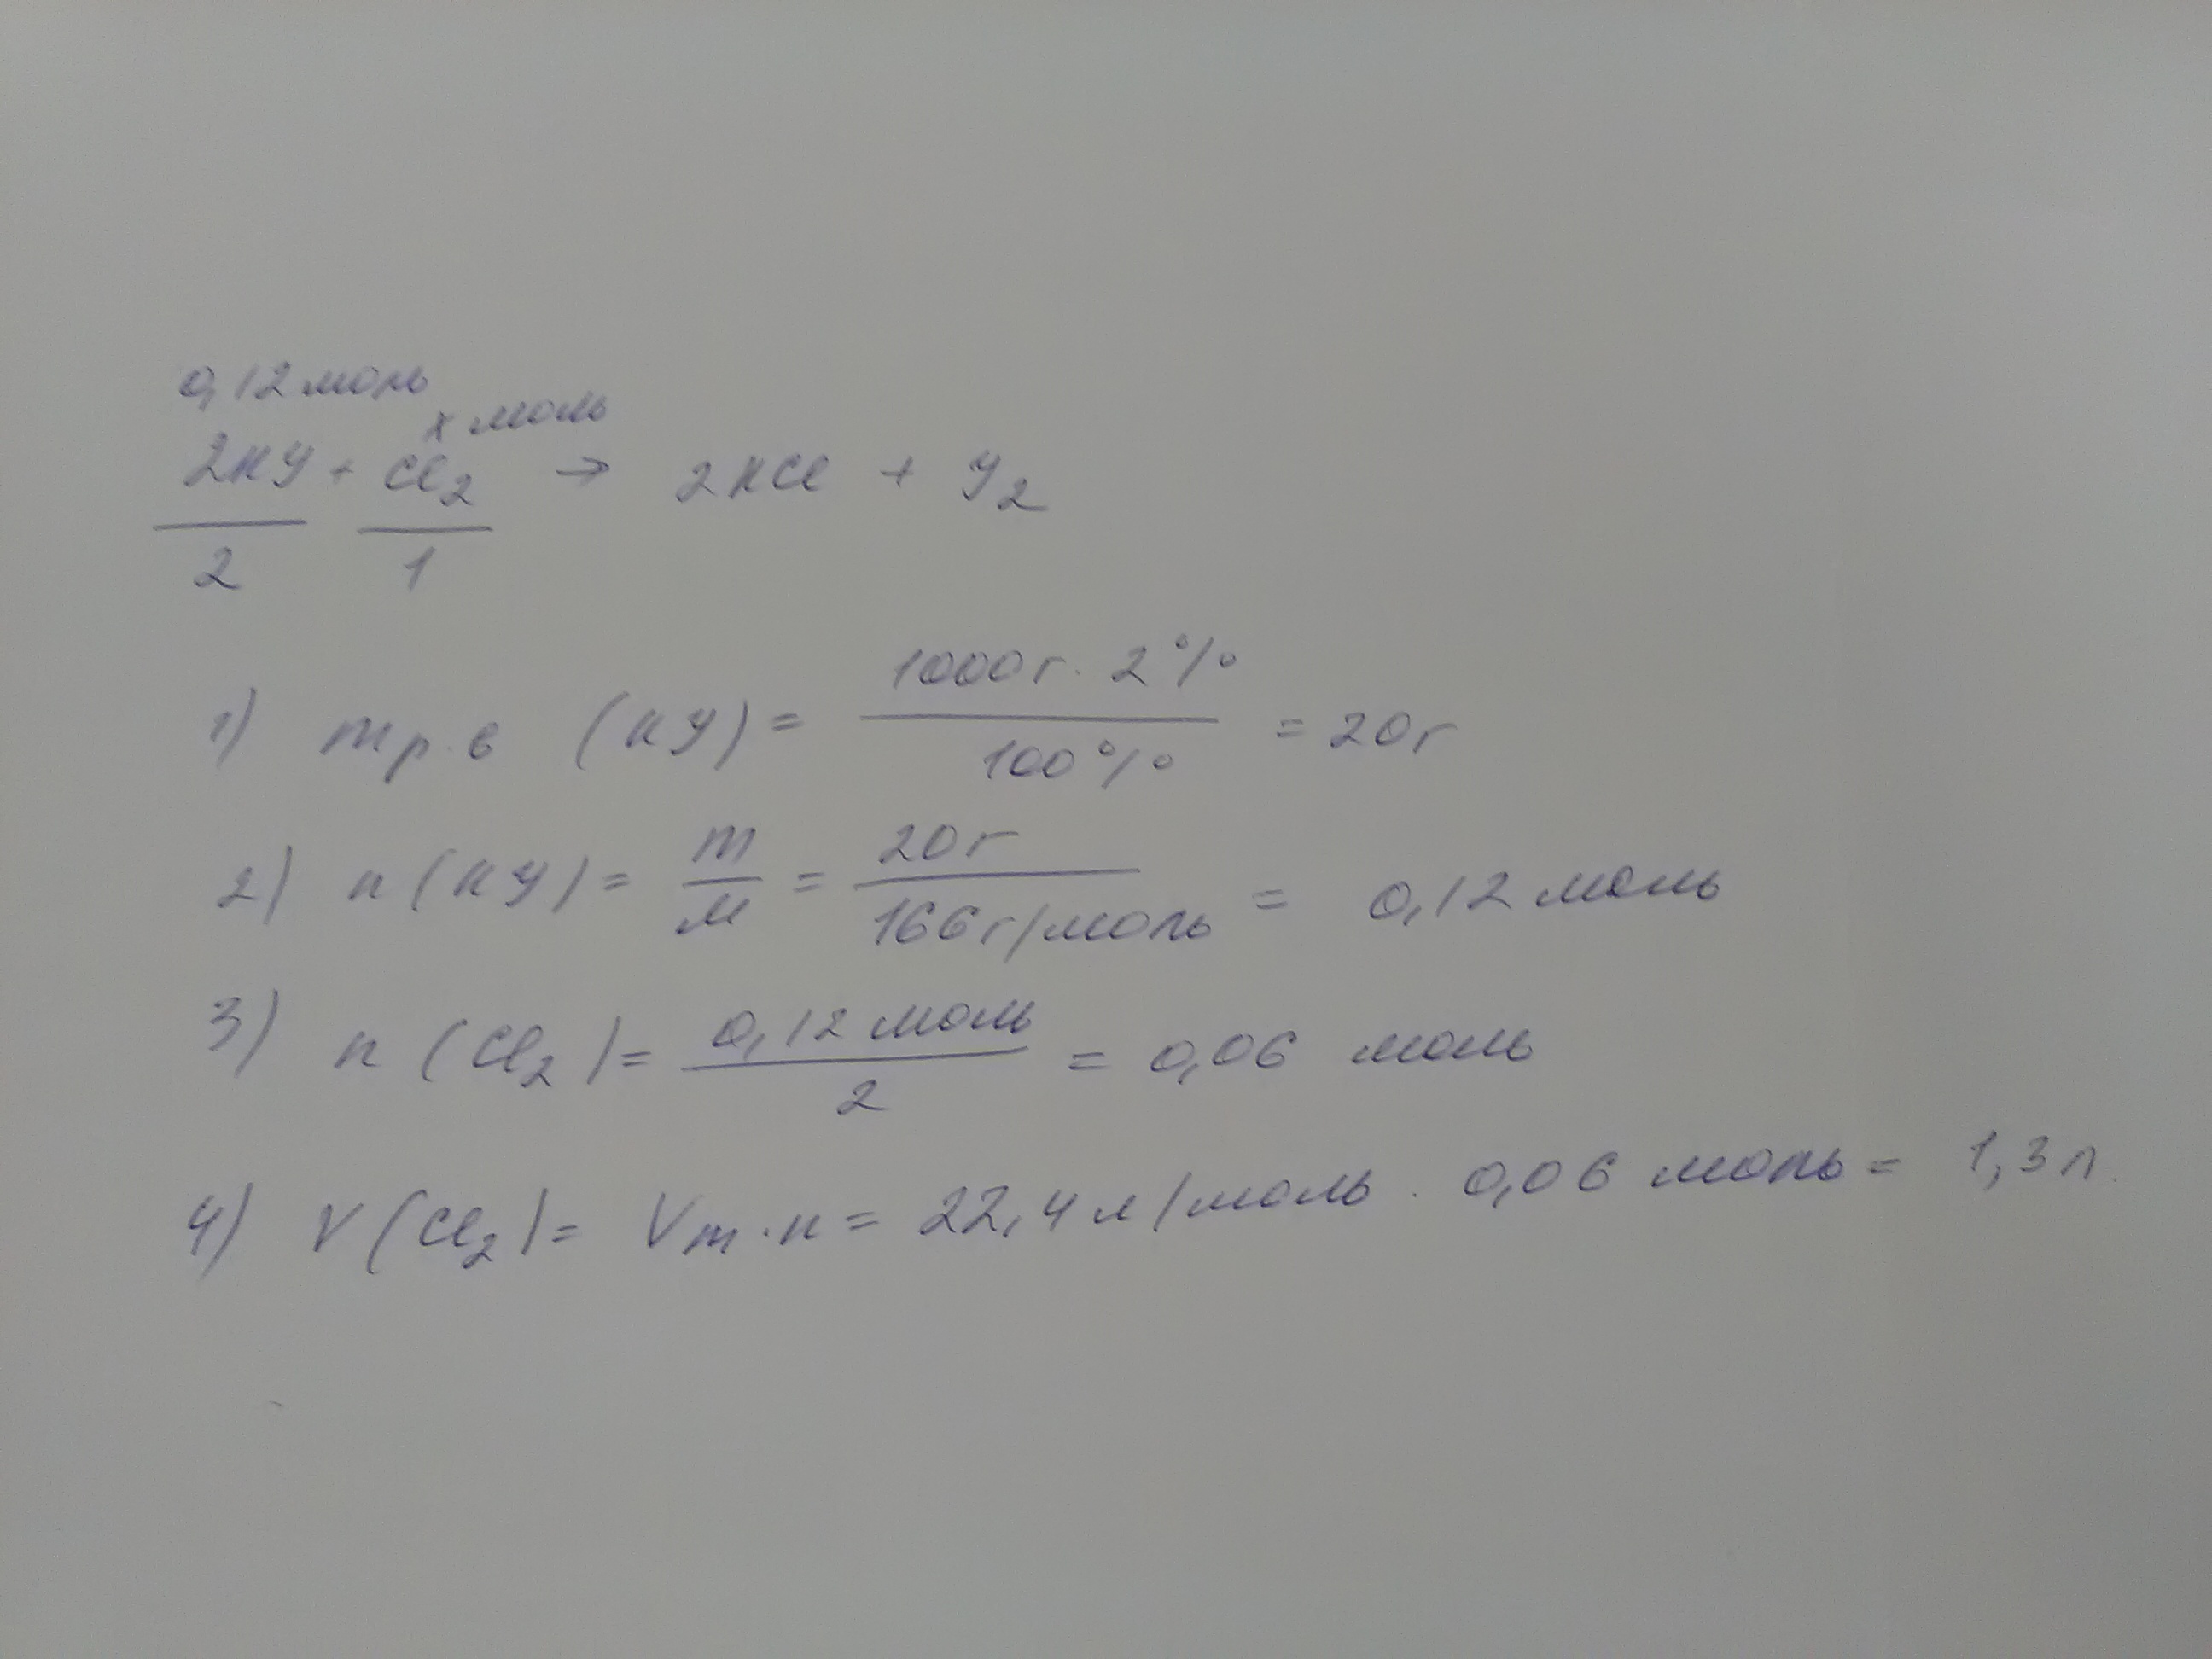 0,12 моль
x моль
2KY + Cl₂ → 2KCl + Y₂
2 1
1) m р.в (KY) = 1000г · 2% / 100% = 20г
2) n (KY) = m / M = 20г / 166г/моль = 0,12 моль
3) n (Cl₂) = 0,12 моль / 2 = 0,06 моль
4) V (Cl₂) = Vm · n = 22,4 л/моль · 0,06 моль = 1,3 л